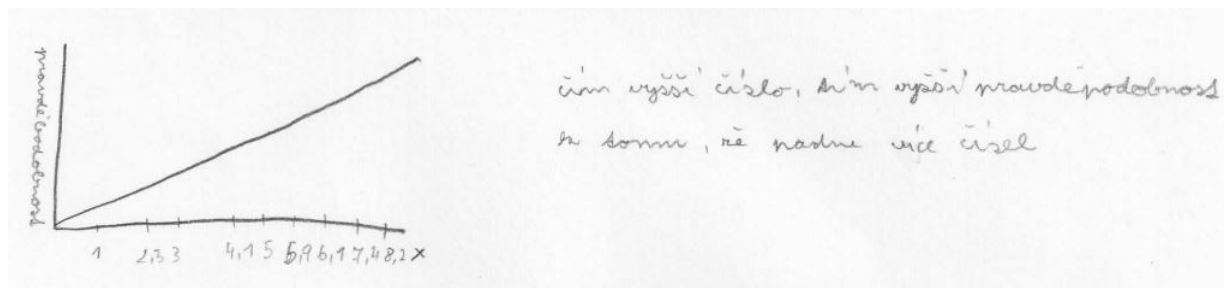 pravděpodobnost
1 2,3 3 4,1 5 5,9 6,1 7,4 8,2 x
čím vyšší číslo, tím vyšší pravděpodobnost
k tomu, že padne více čísel